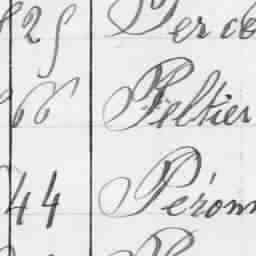 25 Perco
66 Peltier
44 Péronn